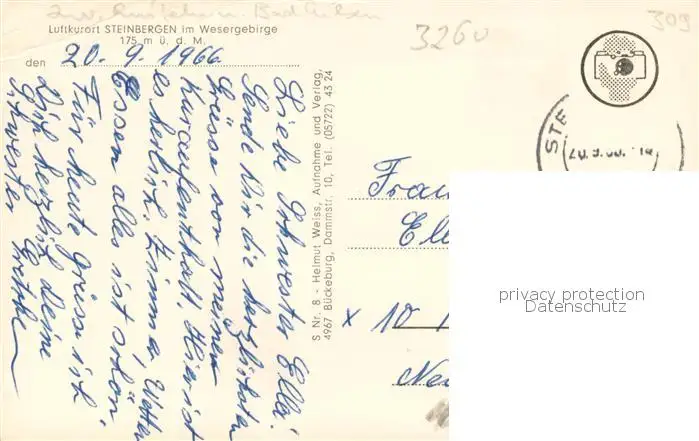 Luftkurort STEINBERGEN im Wesergebirge
175 m ü. d. M.
den 20. 9. 1966
Liebe Schwester Ella!
Sende Dir die herzlichsten
Grüsse von meinem
Kuraufenthalt. Hier ist
es herlich. Zimmer, Wetter
Essen alles ist schön
Für heute grüsse ich
Dich herzlich deine
Schwester
S Nr. 8 - Helmut Weiss, Aufnahme und Verlag,
4967 Bückeburg, Dammstr. 10, Tel. (05722) 43 24
3260
309
STE
Frau
Ell
x 10 1
Ne
privacy protection
Datenschutz